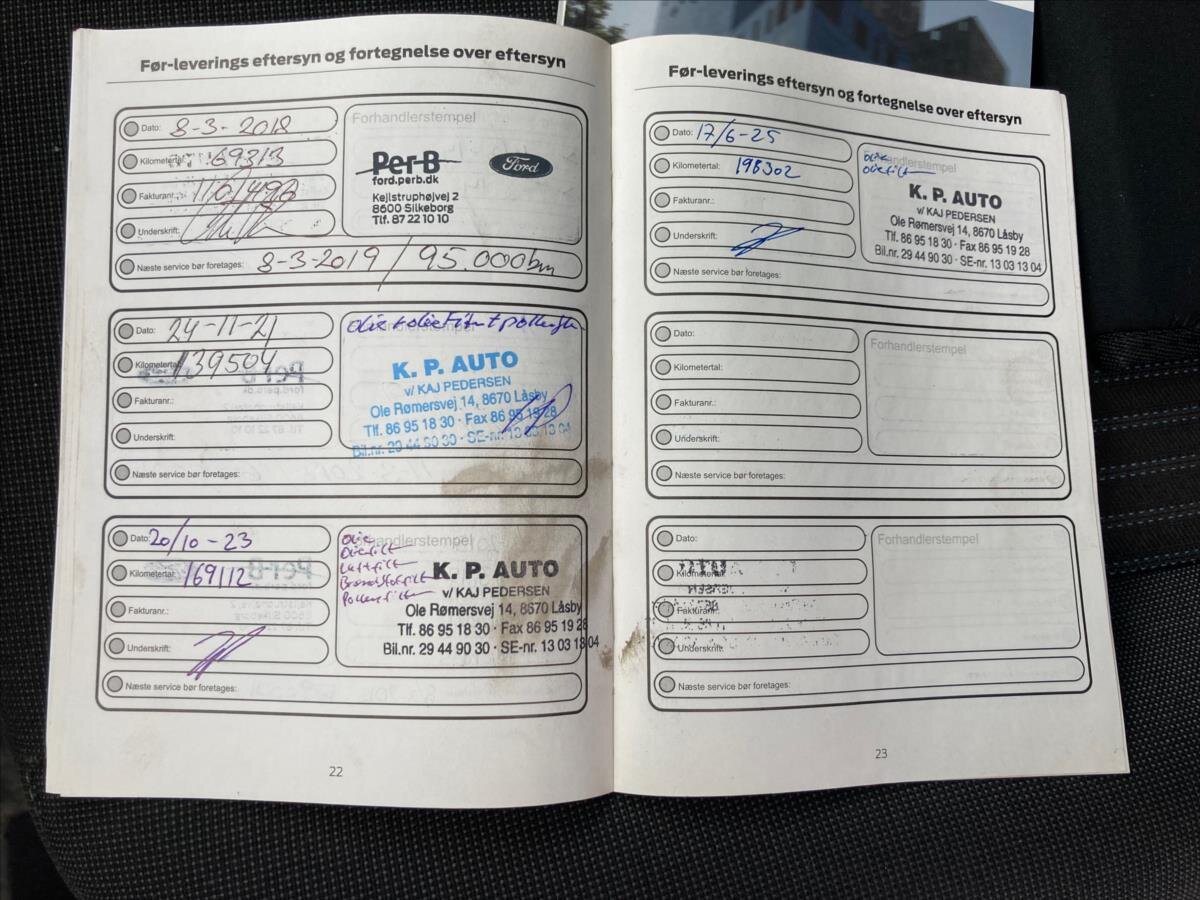 Før-leverings eftersyn og fortegnelse over eftersyn
Dato: 8-3-2018
Kilometertal: 69313
Fakturanr.:
Underskrift:
Næste service bør foretages: 8-3-2019 / 95.000km
Forhandlerstempel
Per-B
ford.perb.dk
Kejlstruphøjvej 2
8600 Silkeborg
Tlf. 87 22 10 10
Ford
Dato: 24-11-21
Kilometertal: 139504
Fakturanr.:
Underskrift:
Næste service bør foretages:
Forhandlerstempel
olie + oliefilter + pollenfilter
K. P. AUTO
v/ KAJ PEDERSEN
Ole Rømersvej 14, 8670 Låsby
Tlf. 86 95 18 30 · Fax 86 95 19 28
Bil.nr. 29 44 90 30 · SE-nr. 13 03 13 04
Dato: 20/10-23
Kilometertal: 169112
Fakturanr.:
Underskrift:
Næste service bør foretages:
Forhandlerstempel
Olie
Oliefilt
Luftfilt
Brændstoffilt
Pollenfilt
K. P. AUTO
v/ KAJ PEDERSEN
Ole Rømersvej 14, 8670 Låsby
Tlf. 86 95 18 30 · Fax 86 95 19 28
Bil.nr. 29 44 90 30 · SE-nr. 13 03 13 04
22
Før-leverings eftersyn og fortegnelse over eftersyn
Dato: 17/6-25
Kilometertal: 198302
Fakturanr.:
Underskrift:
Næste service bør foretages:
Forhandlerstempel
Olie
Oliefilt
K. P. AUTO
v/ KAJ PEDERSEN
Ole Rømersvej 14, 8670 Låsby
Tlf. 86 95 18 30 · Fax 86 95 19 28
Bil.nr. 29 44 90 30 · SE-nr. 13 03 13 04
Dato:
Kilometertal:
Fakturanr.:
Underskrift:
Næste service bør foretages:
Forhandlerstempel
Dato:
Kilometertal:
Fakturanr.:
Underskrift:
Næste service bør foretages:
Forhandlerstempel
23